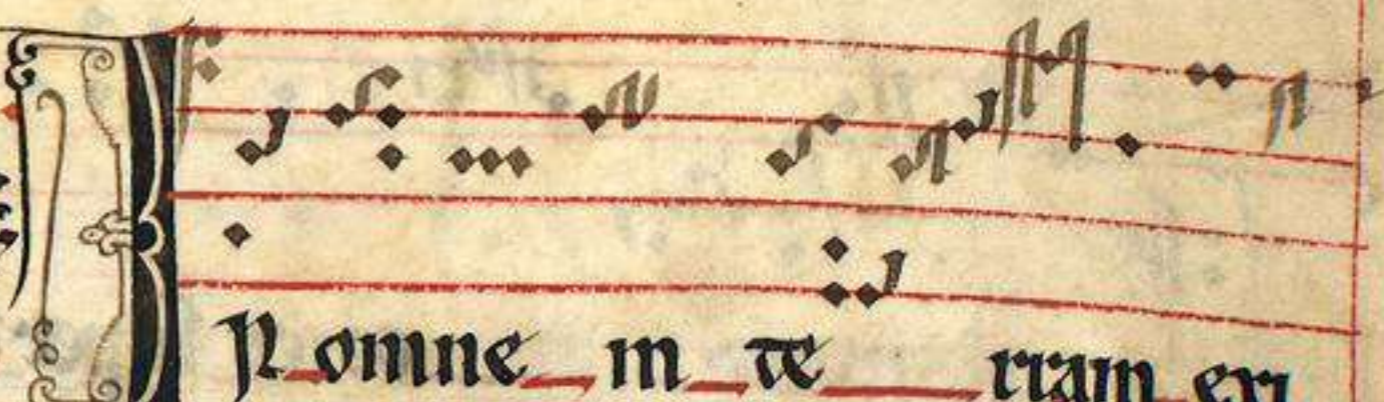 IN omne in te rram exi